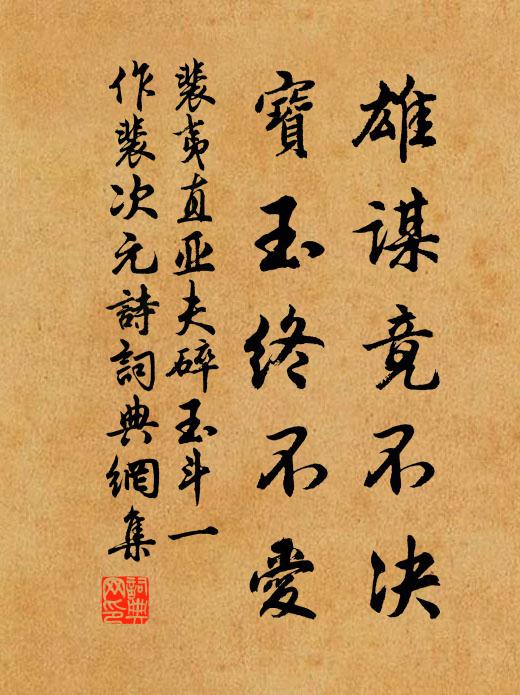 雄謀竟不决
寶玉終不愛
裴夷直亚夫碎玉斗一
作裴次元詩詞典網集
詞典
网印